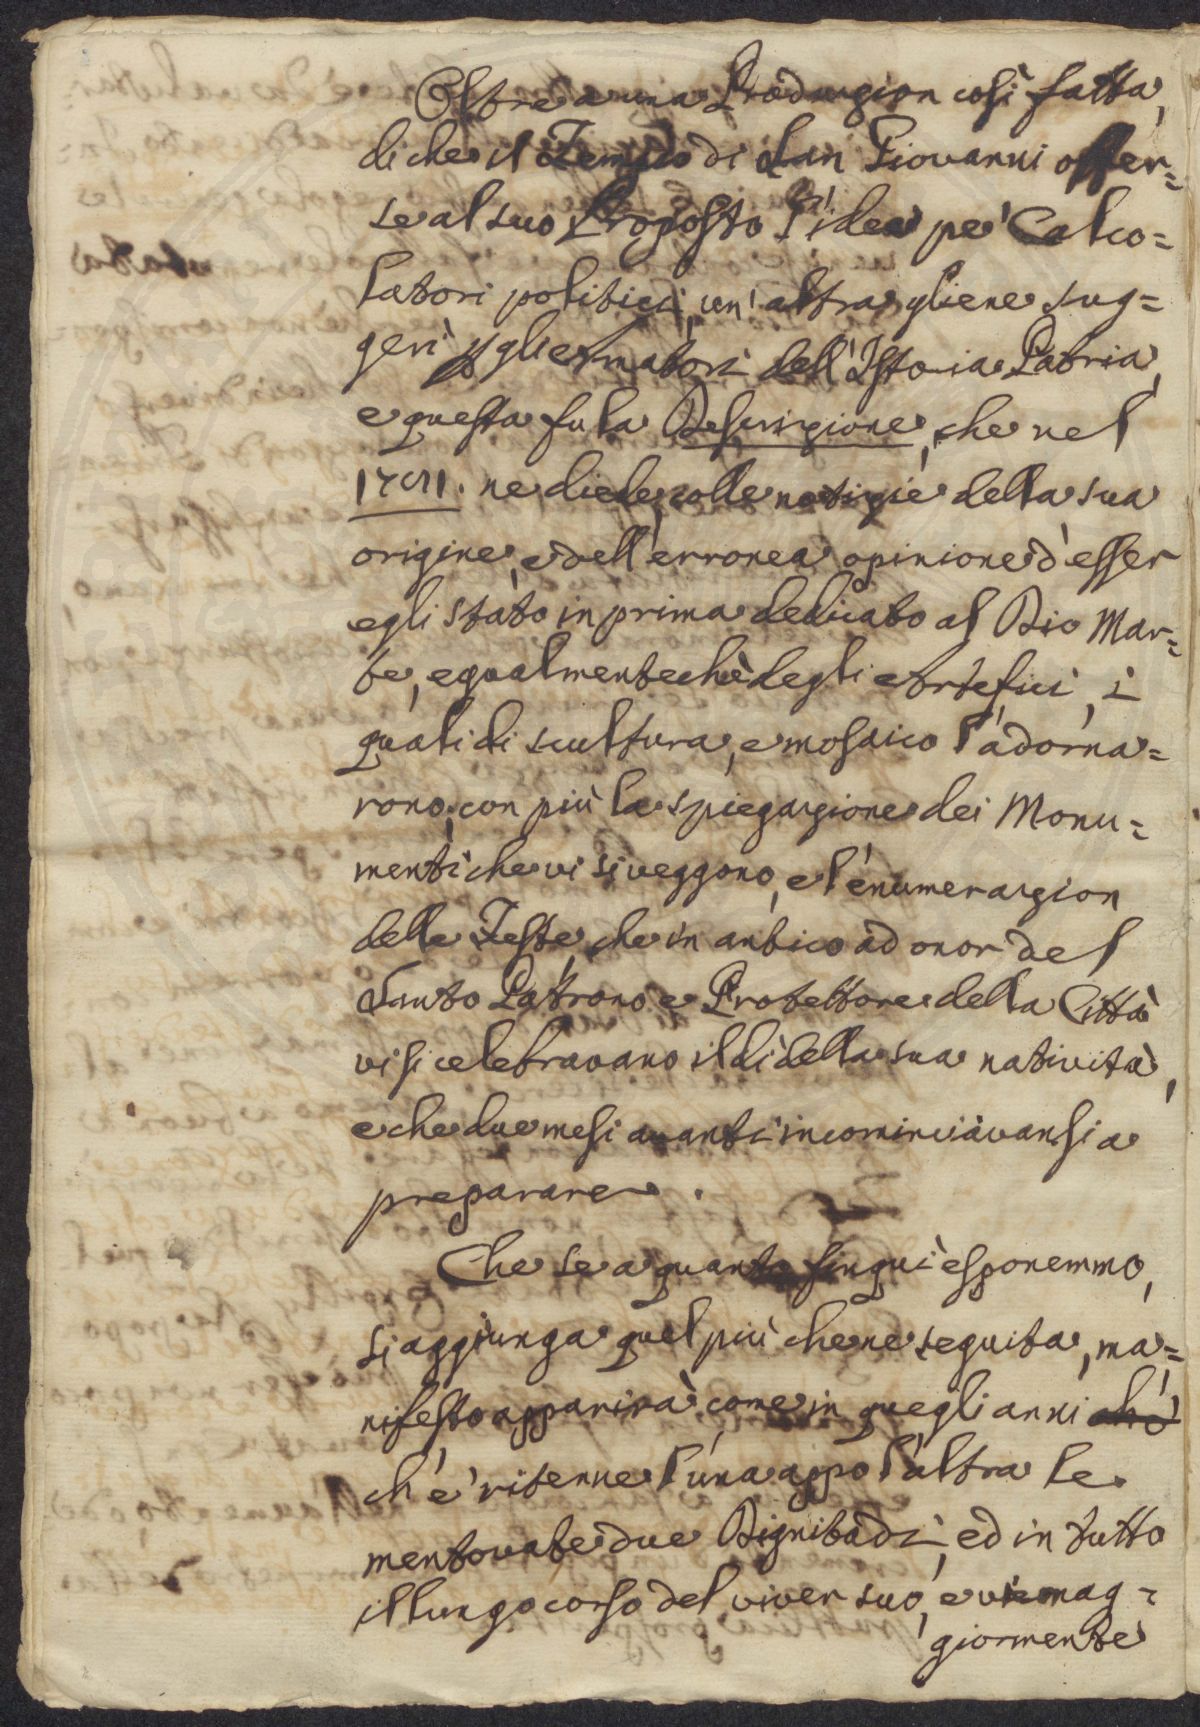 Oltre a una Produzion così fatta,
di che il Tempio di San Giovanni offer=
se al suo Proposto l'idea pe' Calco=
latori politici, un' altra gliene sug=
gerì p gli Amatori dell'Istoria Patria,
e questa fu la Descrizione, che nel
17511. ne diede colle notizie della sua
origine, e dell'erronea opinione d'esser
egli stato in prima dedicato al Dio Mar=
te, egualmente che degli Artefici, i
quali di scultura, e mosaico l'adorna=
rono; con più la spiegazione dei Monu=
menti che vi si veggono, e l'enumerazion
delle Feste, che in antico ad onor del
Santo Patrono e Protettore della Città
vi si celebravano il dì della sua natività,
e che due mesi avanti incominciavansi a
preparare.
Che se a quanto finqui esponemmo,
si aggiunga quel più che ne seguita, ma=
nifesto apparirà come in quegli anni che
ch'e' ritenne l'una appo l'altra le
mentovate due Dignitadi, ed in tutto
il lungo corso del viver suo, e viemag=
giormente